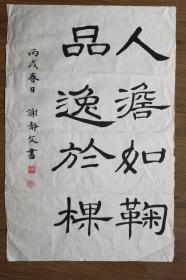 人澹如鞠
品逸於楳
丙戌春日 謝靜文書